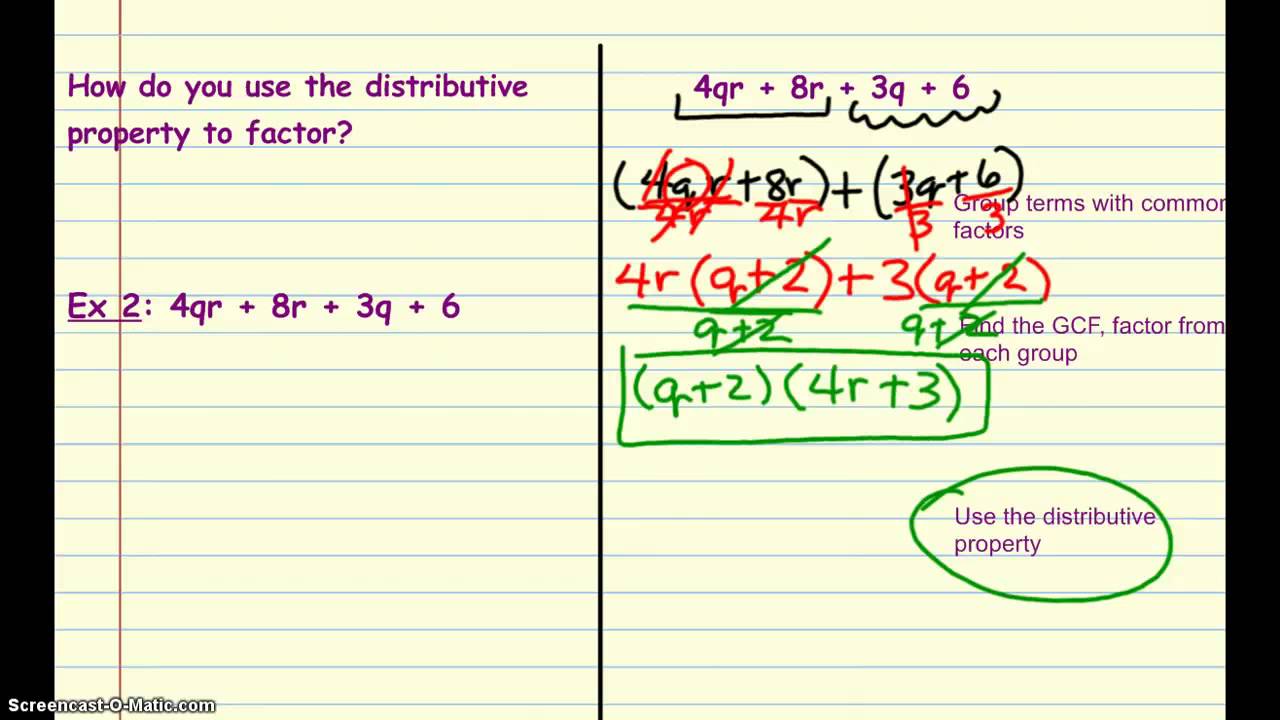 How do you use the distributive
property to factor?
Ex 2: 4qr + 8r + 3q + 6
4qr + 8r + 3q + 6
(4qr + 8r) + (3q + 6)
4r 4r 3 3
Group terms with common
factors
4r (q+2) + 3(q+2)
q+2 q+2
Find the GCF, factor from
each group
(q+2) (4r+3)
Use the distributive
property
Screencast-O-Matic.com